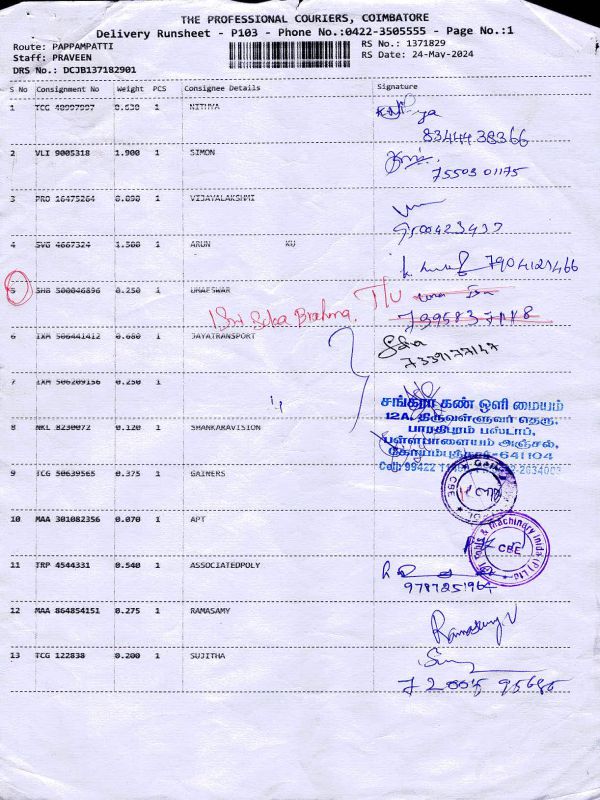 THE PROFESSIONAL COURIERS, COIMBATORE
Delivery Runsheet - P103 - Phone No.:0422-3505555 - Page No.:1
Route: PAPPAMPATTI RS No.: 1371829
Staff: PRAVEEN RS Date: 24-May-2024
DRS No.: DCJB137182901
S No Consignment No Weight PCS Consignee Details Signature
1 TCG 1 NITHYA
83444 38366
2 VLI 9005318 1.900 1 SIMON
75503 01175
3 PRO 16475264 1 VIJAYALAKSHMI
4 SVG 4667324 1.500 1 ARUN KU
7904121466
5 SHB 500046896 0.250 1 UMAESWAR
T/U
6 IXM 506441412 0.080 1 JAYATRANSPORT
7 IXM 506209156 0.250 1
சங்கரா கண் ஒளி மையம்
12A, திருவள்ளுவர் தெரு,
பாரதிபுரம் பஸ்டாப்,
8 NKL 8230072 0.120 1 SHANKARAVISION
பள்ளபாளையம் அஞ்சல்,
கோயம்புத்தூர்-641104
Cell: 99422
9 TCG 50639565 0.375 1 GAINERS
CBE
10 MAA 301082356 0.070 1 APT
Tools & Machinary India (P) Ltd
CBE
11 TRP 4544331 0.540 1 ASSOCIATEDPOLY
9787251964
12 MAA 864854151 0.275 1 RAMASAMY
Ramasamy. V
13 TCG 122838 0.200 1 SUJITHA